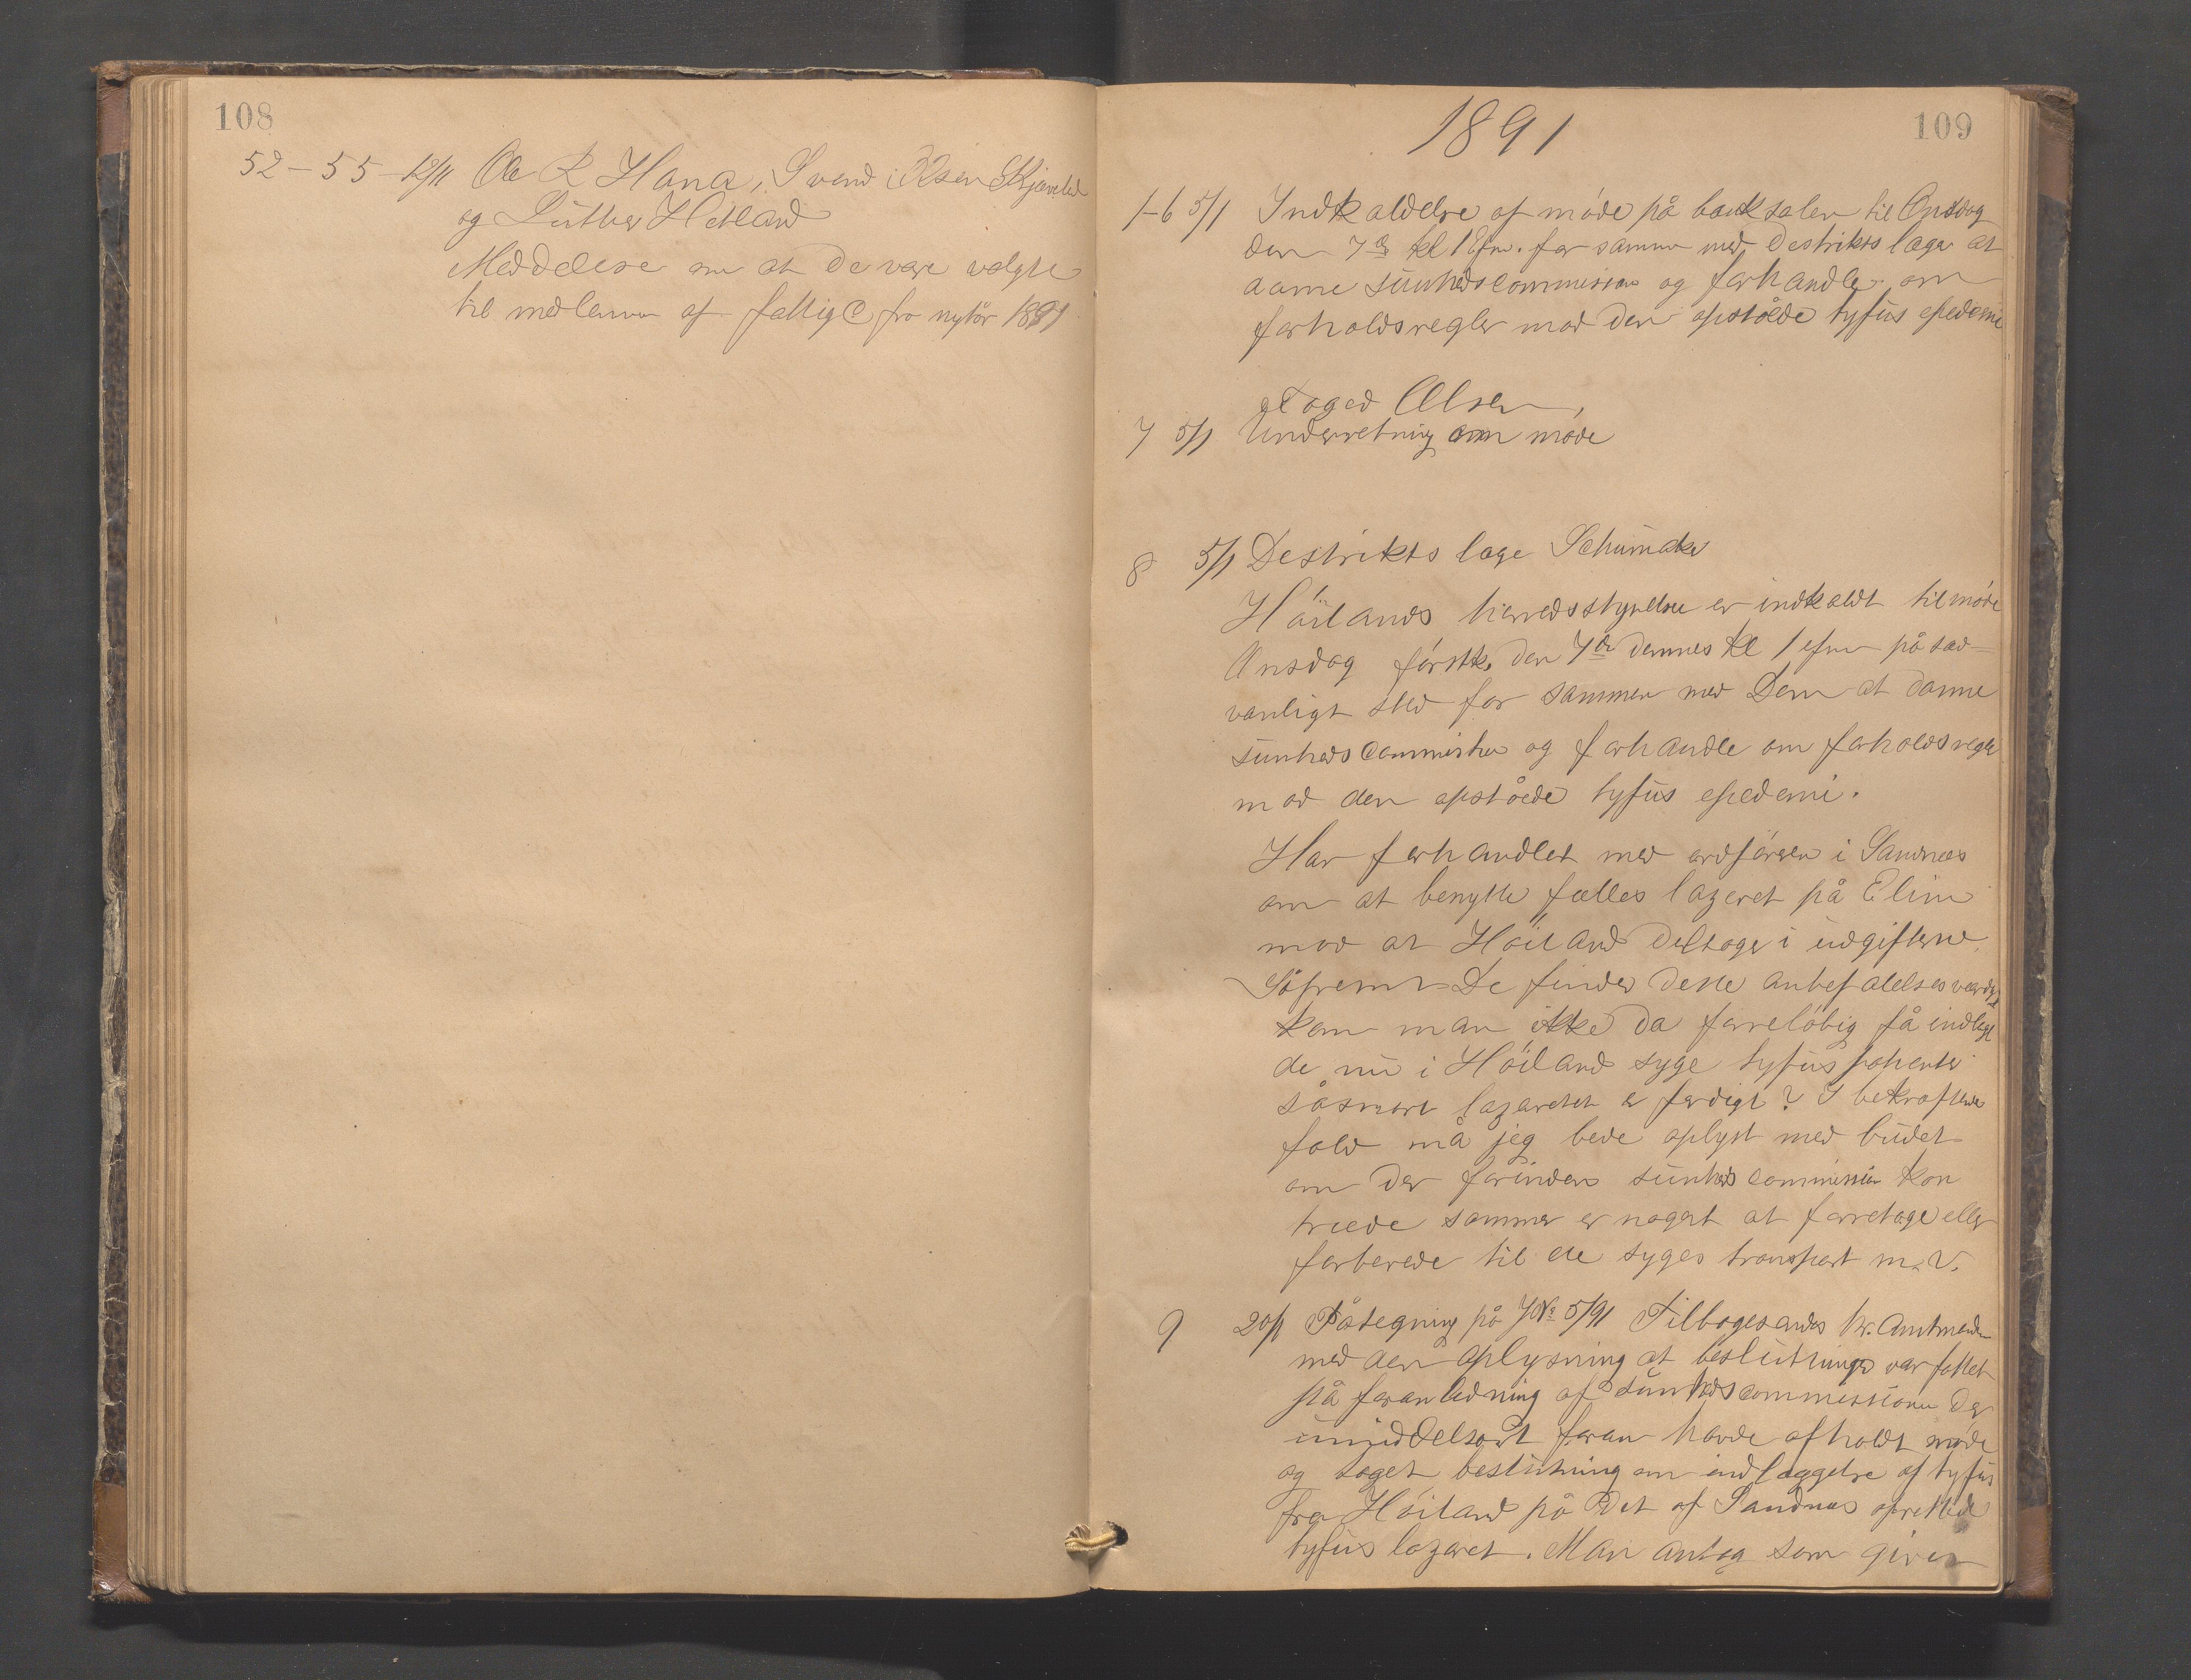 108
52-55 12/11 Ole R Hana, Svend Olsen Skjæveland
og Luther Hetland
Meddelese om at de vare valgte
til medlemmer af fattigC fra nytår 1891
109
1891
1-6 5/1 Indkaldelse af møde på banksalen til Onsdag
den 7de kl 1 Efm. for sammen med Destrikts læge at
danne sunhedscommission og forhandle om
forholdsregler mod den opståede tyfus epedemi
Foged Olsen,
7 5/1 Underretning om møde
8 5/1 Destrikts læge Schumaker
Höilands herredsstyrelse er indkaldt til møde
Onsdag førstk. den 7de dennes kl 1 efm på sæd-
vanligt sted for sammen med Dem at danne
sunheds Commission og forhandle om forholdsregler
mod den opståede tyfus epedemi.
Har forhandlet med ordføreren i Sandnes
om at benytte fælles lazeret på Elim
mod at Höiland deltager i udgifterne.
Såfremt De finder dette anbefalelsesværdigt
kan man ikke da forreløbig få indlagt
de nu i Höiland syge tyfus patienter
såsnart lazaretet er færdigt? I bekræftende
fald må jeg bede oplyst med budet
om der forinden sunheds commission kan
træde sammen er noget at forretage eller
forberede til de syges transport m.v.
9 20/1 Påtegning på JNo 5/91 Tilbagesendes hr. Amtmanden
med den oplysning at beslutningen var fattet
på foranledning af sunhedscommissionen der
umiddelbart foran havde afholdt møde
og taget beslutning om indlæggelse af tyfus
fra Höiland på det af Sandnes oprettede
tyfus lazaret. Man antog som given